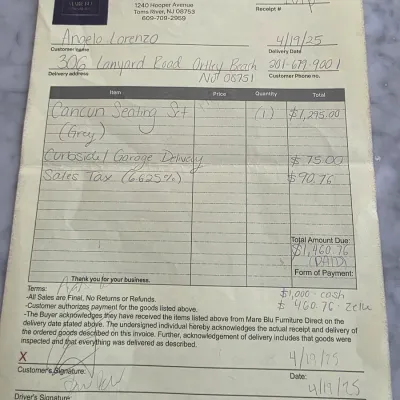 1240 Hooper Avenue
Toms River, NJ 08753
609-709-2959
Receipt #
Angelo Lorenzo
4/19/25
Customer name
Delivery Date
306 Lanyard Road Ortley Beach
201-679-9001
Delivery address
NJ 08751
Customer Phone no.
Item Price Quantity Total
Cancun Seating Set (1) $1,295.00
(Grey)
Curbside/Garage Delivery $75.00
Sales Tax (6.625%) $90.76
Total Amount Due:
$1,460.76
(PAID)
Thank you for your business.
Form of Payment:
Terms:
$1,000 - cash
-All Sales are Final, No Returns or Refunds.
$460.76 - Zelle
-Customer authorizes payment for the goods listed above.
-The Buyer acknowledges they have received the items listed above from Mare Blu Furniture Direct on the
delivery date stated above. The undersigned individual hereby acknowledges the actual receipt and delivery of
the ordered goods described on this invoice. Further, acknowledgement of delivery includes that goods were
inspected and that everything was delivered as described.
X
4/19/25
Customer's Signature:
Date:
4/19/25
Driver's Signature: